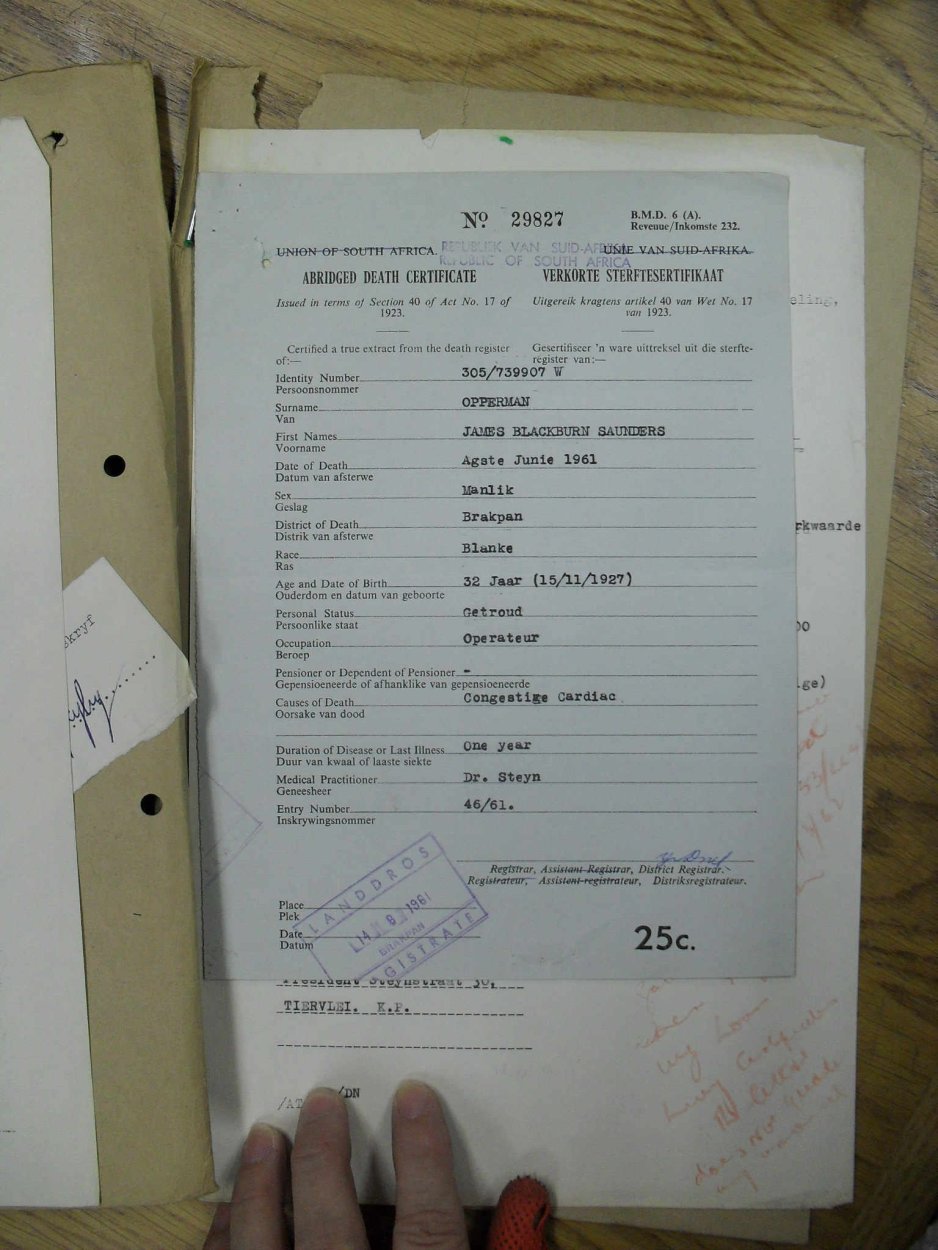 No. 29827
B.M.D. 6 (A).
Revenue/Inkomste 232.
UNION OF SOUTH AFRICA.
UNIE VAN SUID-AFRIKA.
REPUBLIEK VAN SUID-AFRIKA
REPUBLIC OF SOUTH AFRICA
ABRIDGED DEATH CERTIFICATE
VERKORTE STERFTESERTIFIKAAT
Issued in terms of Section 40 of Act No. 17 of
1923.
Uitgereik kragtens artikel 40 van Wet No. 17
van 1923.
Certified a true extract from the death register
of:—
Gesertifiseer 'n ware uittreksel uit die sterfte-
register van:—
Identity Number 305/739907 W
Persoonsnommer
Surname OPPERMAN
Van
First Names JAMES BLACKBURN SAUNDERS
Voorname
Date of Death Agste Junie 1961
Datum van afsterwe
Sex Manlik
Geslag
District of Death Brakpan
Distrik van afsterwe
Race Blanke
Ras
Age and Date of Birth 32 Jaar (15/11/1927)
Ouderdom en datum van geboorte
Personal Status Getroud
Persoonlike staat
Occupation Operateur
Beroep
Pensioner or Dependent of Pensioner -
Gepensioeneerde of afhanklike van gepensioeneerde
Causes of Death Congestige Cardiac
Oorsake van dood
Duration of Disease or Last Illness One year
Duur van kwaal of laaste siekte
Medical Practitioner Dr. Steyn
Geneesheer
Entry Number 46/61.
Inskrywingsnommer
Registrar, Assistant Registrar, District Registrar.
Registrateur, Assistent-registrateur, Distriksregistrateur.
Place
Plek
Date
Datum
LANDDROS
14 6 1961
BRAKPAN
GISTRATE
25c.
eling,
rkwaarde
00
ge)
skryf
President Steynstraat 30,
TIERVLEI. K.P.
/AT /DN
my
does not